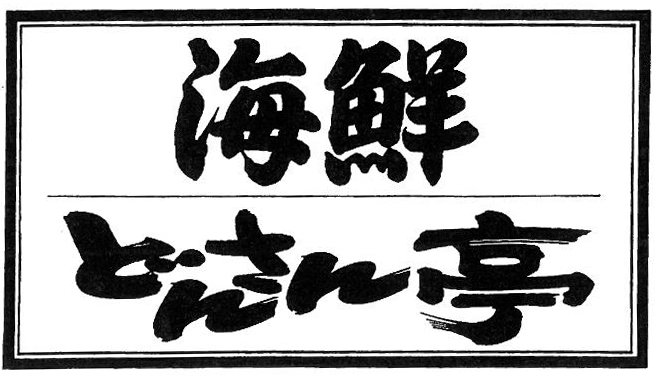 海鮮
どんさん亭